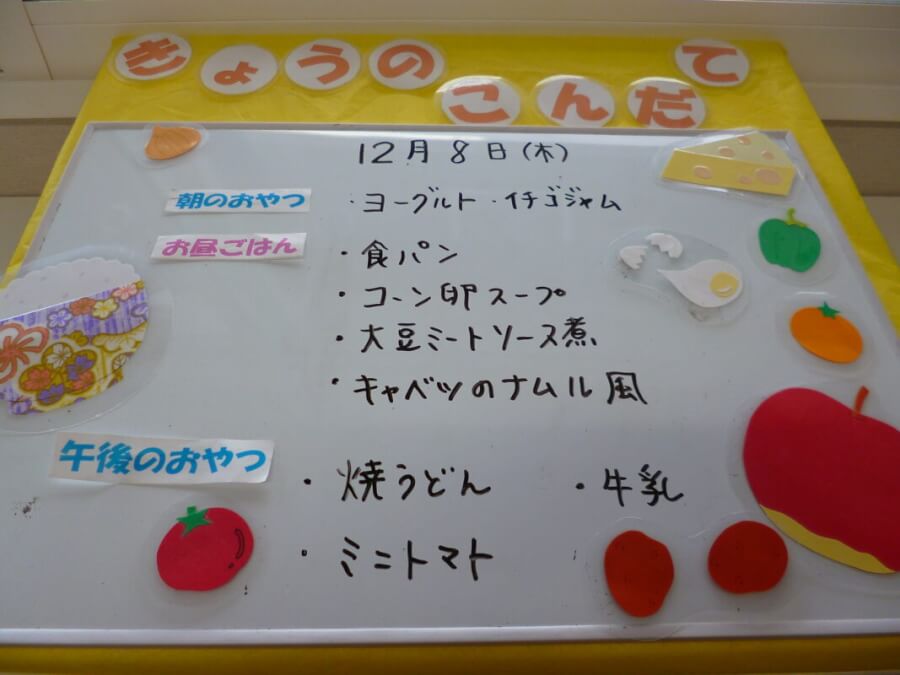 きょうの
こんだて
12月8日(木)
朝のおやつ ・ヨーグルト ・イチゴジャム
お昼ごはん ・食パン
・コーン卵スープ
・大豆ミートソース煮
・キャベツのナムル風
午後のおやつ ・焼うどん ・牛乳
・ミニトマト